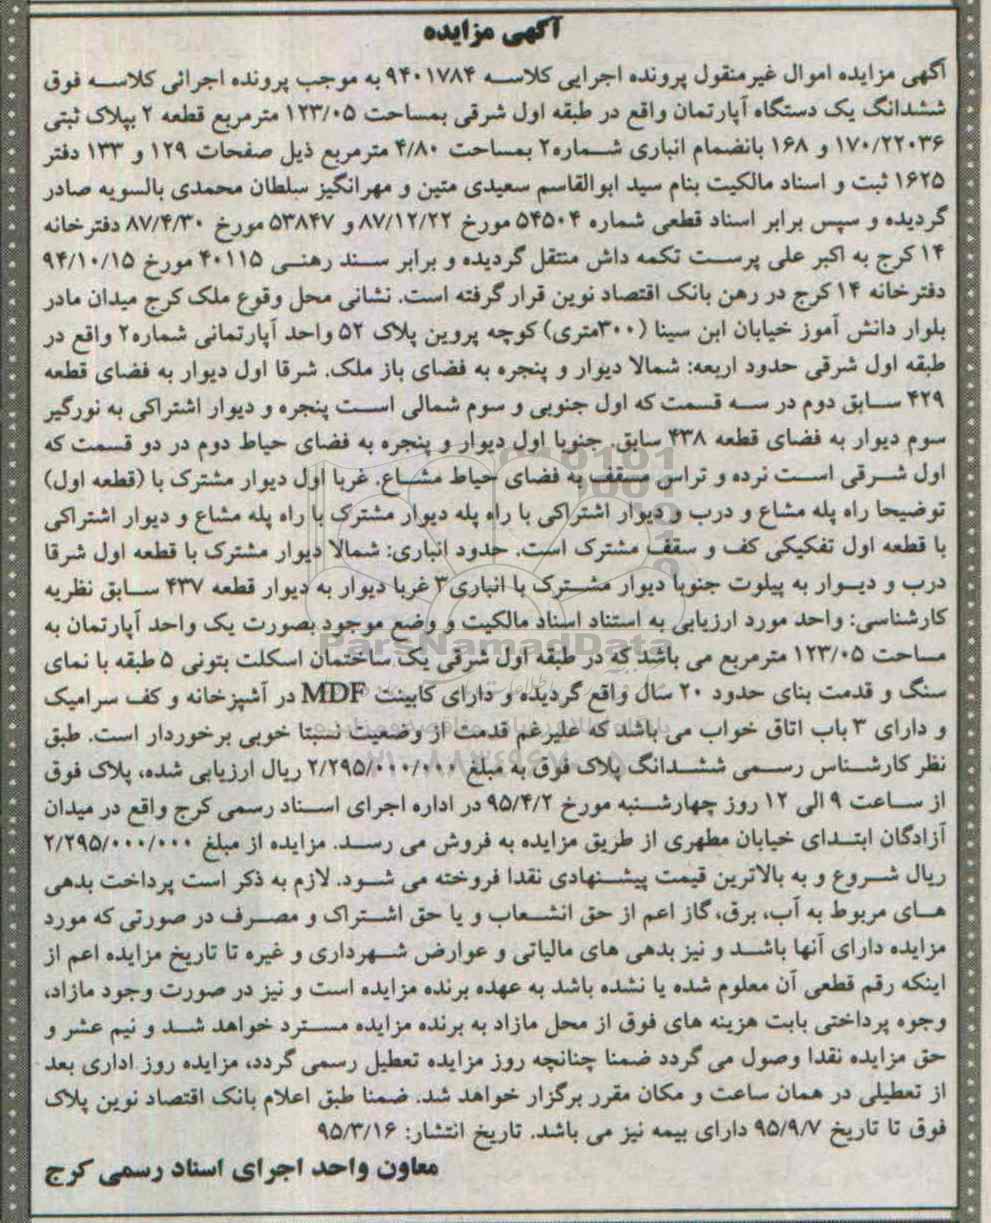 آگهی مزایده
آگهی مزایده اموال غیرمنقول پرونده اجرایی کلاسه ۹۴۰۱۷۸۴ به موجب پرونده اجرائی کلاسه فوق
ششدانگ یک دستگاه آپارتمان واقع در طبقه اول شرقی بمساحت ۱۲۳/۰۵ مترمربع قطعه ۲ بپلاک ثبتی
۱۷۰/۲۲۰۳۶ و ۱۶۸ بانضمام انباری شماره۲ بمساحت ۴/۸۰ مترمربع ذیل صفحات ۱۲۹ و ۱۳۳ دفتر
۱۶۲۵ ثبت و اسناد مالکیت بنام سید ابوالقاسم سعیدی متین و مهرانگیز سلطان محمدی بالسویه صادر
گردیده و سپس برابر اسناد قطعی شماره ۵۴۵۰۴ مورخ ۸۷/۱۲/۲۲ و ۵۳۸۴۷ مورخ ۸۷/۴/۳۰ دفترخانه
۱۴ کرج به اکبر علی پرست تکمه داش منتقل گردیده و برابر سند رهنی ۴۰۱۱۵ مورخ ۹۴/۱۰/۱۵
دفترخانه ۱۴ کرج در رهن بانک اقتصاد نوین قرار گرفته است. نشانی محل وقوع ملک کرج میدان مادر
بلوار دانش آموز خیابان ابن سینا (۳۰۰متری) کوچه پروین پلاک ۵۲ واحد آپارتمانی شماره۲ واقع در
طبقه اول شرقی حدود اربعه: شمالا دیوار و پنجره به فضای باز ملک. شرقا اول دیوار به فضای قطعه
۴۲۹ سابق دوم در سه قسمت که اول جنوبی و سوم شمالی است پنجره و دیوار اشتراکی به نورگیر
سوم دیوار به فضای قطعه ۴۳۸ سابق. جنوبا اول دیوار و پنجره به فضای حیاط دوم در دو قسمت که
اول شرقی است نرده و تراس مسقف به فضای حیاط مشاع. غربا اول دیوار مشترک با (قطعه اول)
توضیحا راه پله مشاع و درب و دیوار اشتراکی با راه پله دیوار مشترک با راه پله مشاع و دیوار اشتراکی
با قطعه اول تفکیکی کف و سقف مشترک است. حدود انباری: شمالا دیوار مشترک با قطعه اول شرقا
درب و دیوار به پیلوت جنوبا دیوار مشترک با انباری ۳ غربا دیوار به دیوار قطعه ۴۳۷ سابق نظریه
کارشناسی: واحد مورد ارزیابی به استناد اسناد مالکیت و وضع موجود بصورت یک واحد آپارتمان به
مساحت ۱۲۳/۰۵ مترمربع می باشد که در طبقه اول شرقی یک ساختمان اسکلت بتونی ۵ طبقه با نمای
سنگ و قدمت بنای حدود ۲۰ سال واقع گردیده و دارای کابینت MDF در آشپزخانه و کف سرامیک
و دارای ۳ باب اتاق خواب می باشد که علیرغم قدمت از وضعیت نسبتا خوبی برخوردار است. طبق
نظر کارشناس رسمی ششدانگ پلاک فوق به مبلغ ۲/۲۹۵/۰۰۰/۰۰۰ ریال ارزیابی شده، پلاک فوق
از ساعت ۹ الی ۱۲ روز چهارشنبه مورخ ۹۵/۴/۲ در اداره اجرای اسناد رسمی کرج واقع در میدان
آزادگان ابتدای خیابان مطهری از طریق مزایده به فروش می رسد. مزایده از مبلغ ۲/۲۹۵/۰۰۰/۰۰۰
ریال شروع و به بالاترین قیمت پیشنهادی نقدا فروخته می شود. لازم به ذکر است پرداخت بدهی
های مربوط به آب، برق، گاز اعم از حق انشعاب و یا حق اشتراک و مصرف در صورتی که مورد
مزایده دارای آنها باشد و نیز بدهی های مالیاتی و عوارض شهرداری و غیره تا تاریخ مزایده اعم از
اینکه رقم قطعی آن معلوم شده یا نشده باشد به عهده برنده مزایده است و نیز در صورت وجود مازاد،
وجوه پرداختی بابت هزینه های فوق از محل مازاد به برنده مزایده مسترد خواهد شد و نیم عشر و
حق مزایده نقدا وصول می گردد ضمنا چنانچه روز مزایده تعطیل رسمی گردد، مزایده روز اداری بعد
از تعطیلی در همان ساعت و مکان مقرر برگزار خواهد شد. ضمنا طبق اعلام بانک اقتصاد نوین پلاک
فوق تا تاریخ ۹۵/۹/۷ دارای بیمه نیز می باشد. تاریخ انتشار: ۹۵/۳/۱۶
معاون واحد اجرای اسناد رسمی کرج
ParsNamadData